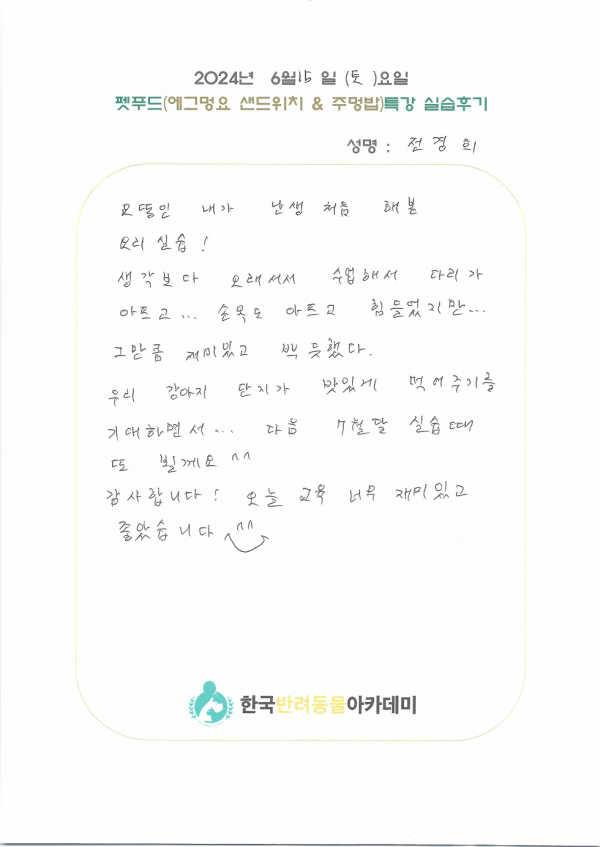 2024년 6월 15일 (토)요일
펫푸드(에그멍요 샌드위치 & 주멍밥)특강 실습후기
성명 : 전경희
요똥인 내가 난생 처음 해본
요리 실습!
생각보다 오래서서 수업해서 다리가
아프고... 손목도 아프고 힘들었지만...
그만큼 재미있고 뿌듯했다.
우리 강아지 단지가 맛있게 먹어주기를
기대하면서... 다음 7월달 실습때
또 뵐께요 ^^
감사합니다! 오늘 교육 너무 재미있고
좋았습니다 ^^
한국반려동물아카데미